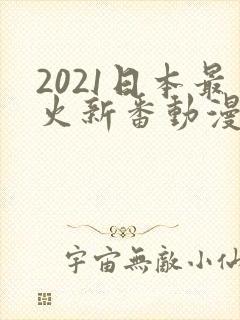 2021日本最
火新番動漫
宇宙無敵小仙